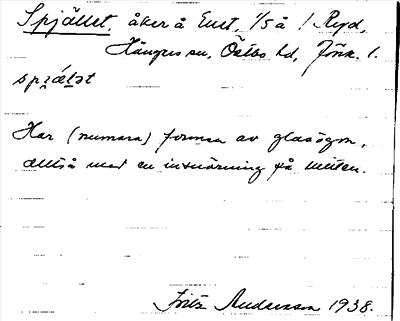 Spjället, åker å Enet, 1/5 å 1 Ryd,
Hångers sn, Östbo hd, Jönk. l.
spjǽlət
Har (numera) formen av glasögon,
alltså med en insnörning på mitten.
Fritz Andersson 1938.